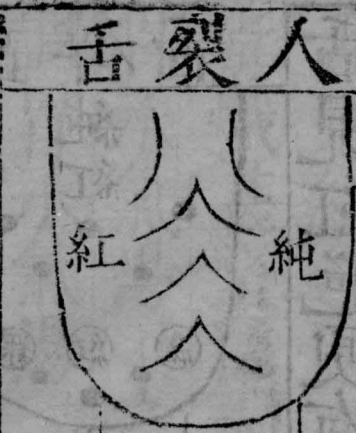 人裂舌
純紅